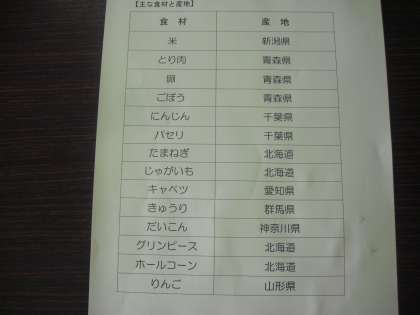 【主な食材と産地】
食材 産地
米 新潟県
とり肉 青森県
卵 青森県
ごぼう 青森県
にんじん 千葉県
パセリ 千葉県
たまねぎ 北海道
じゃがいも 北海道
キャベツ 愛知県
きゅうり 群馬県
だいこん 神奈川県
グリンピース 北海道
ホールコーン 北海道
りんご 山形県